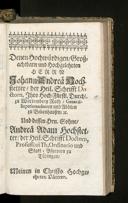 Denen Hochwürdigen/Groß-
achtbarn und Hochgelehrten
HERRN
Johann Andreä Hoch-
stetter/ der Heil. Schrifft Do-
ctorn, Ihro Hoch-Fürstl. Durchl.
zu Würtemberg Rath/ General-
Superintendenten und Abbten
zu Bebenhausen ꝛc.
Und dessen Hrn. Sohne/
Andreä Adam Hochstet-
ter/ der Heil. Schrifft Doctorn,
Professori Th. Ordinario und
Stadt-Pfarrern zu
Tübingen
Meinen in Christo Hochge-
ehrten Vätern.